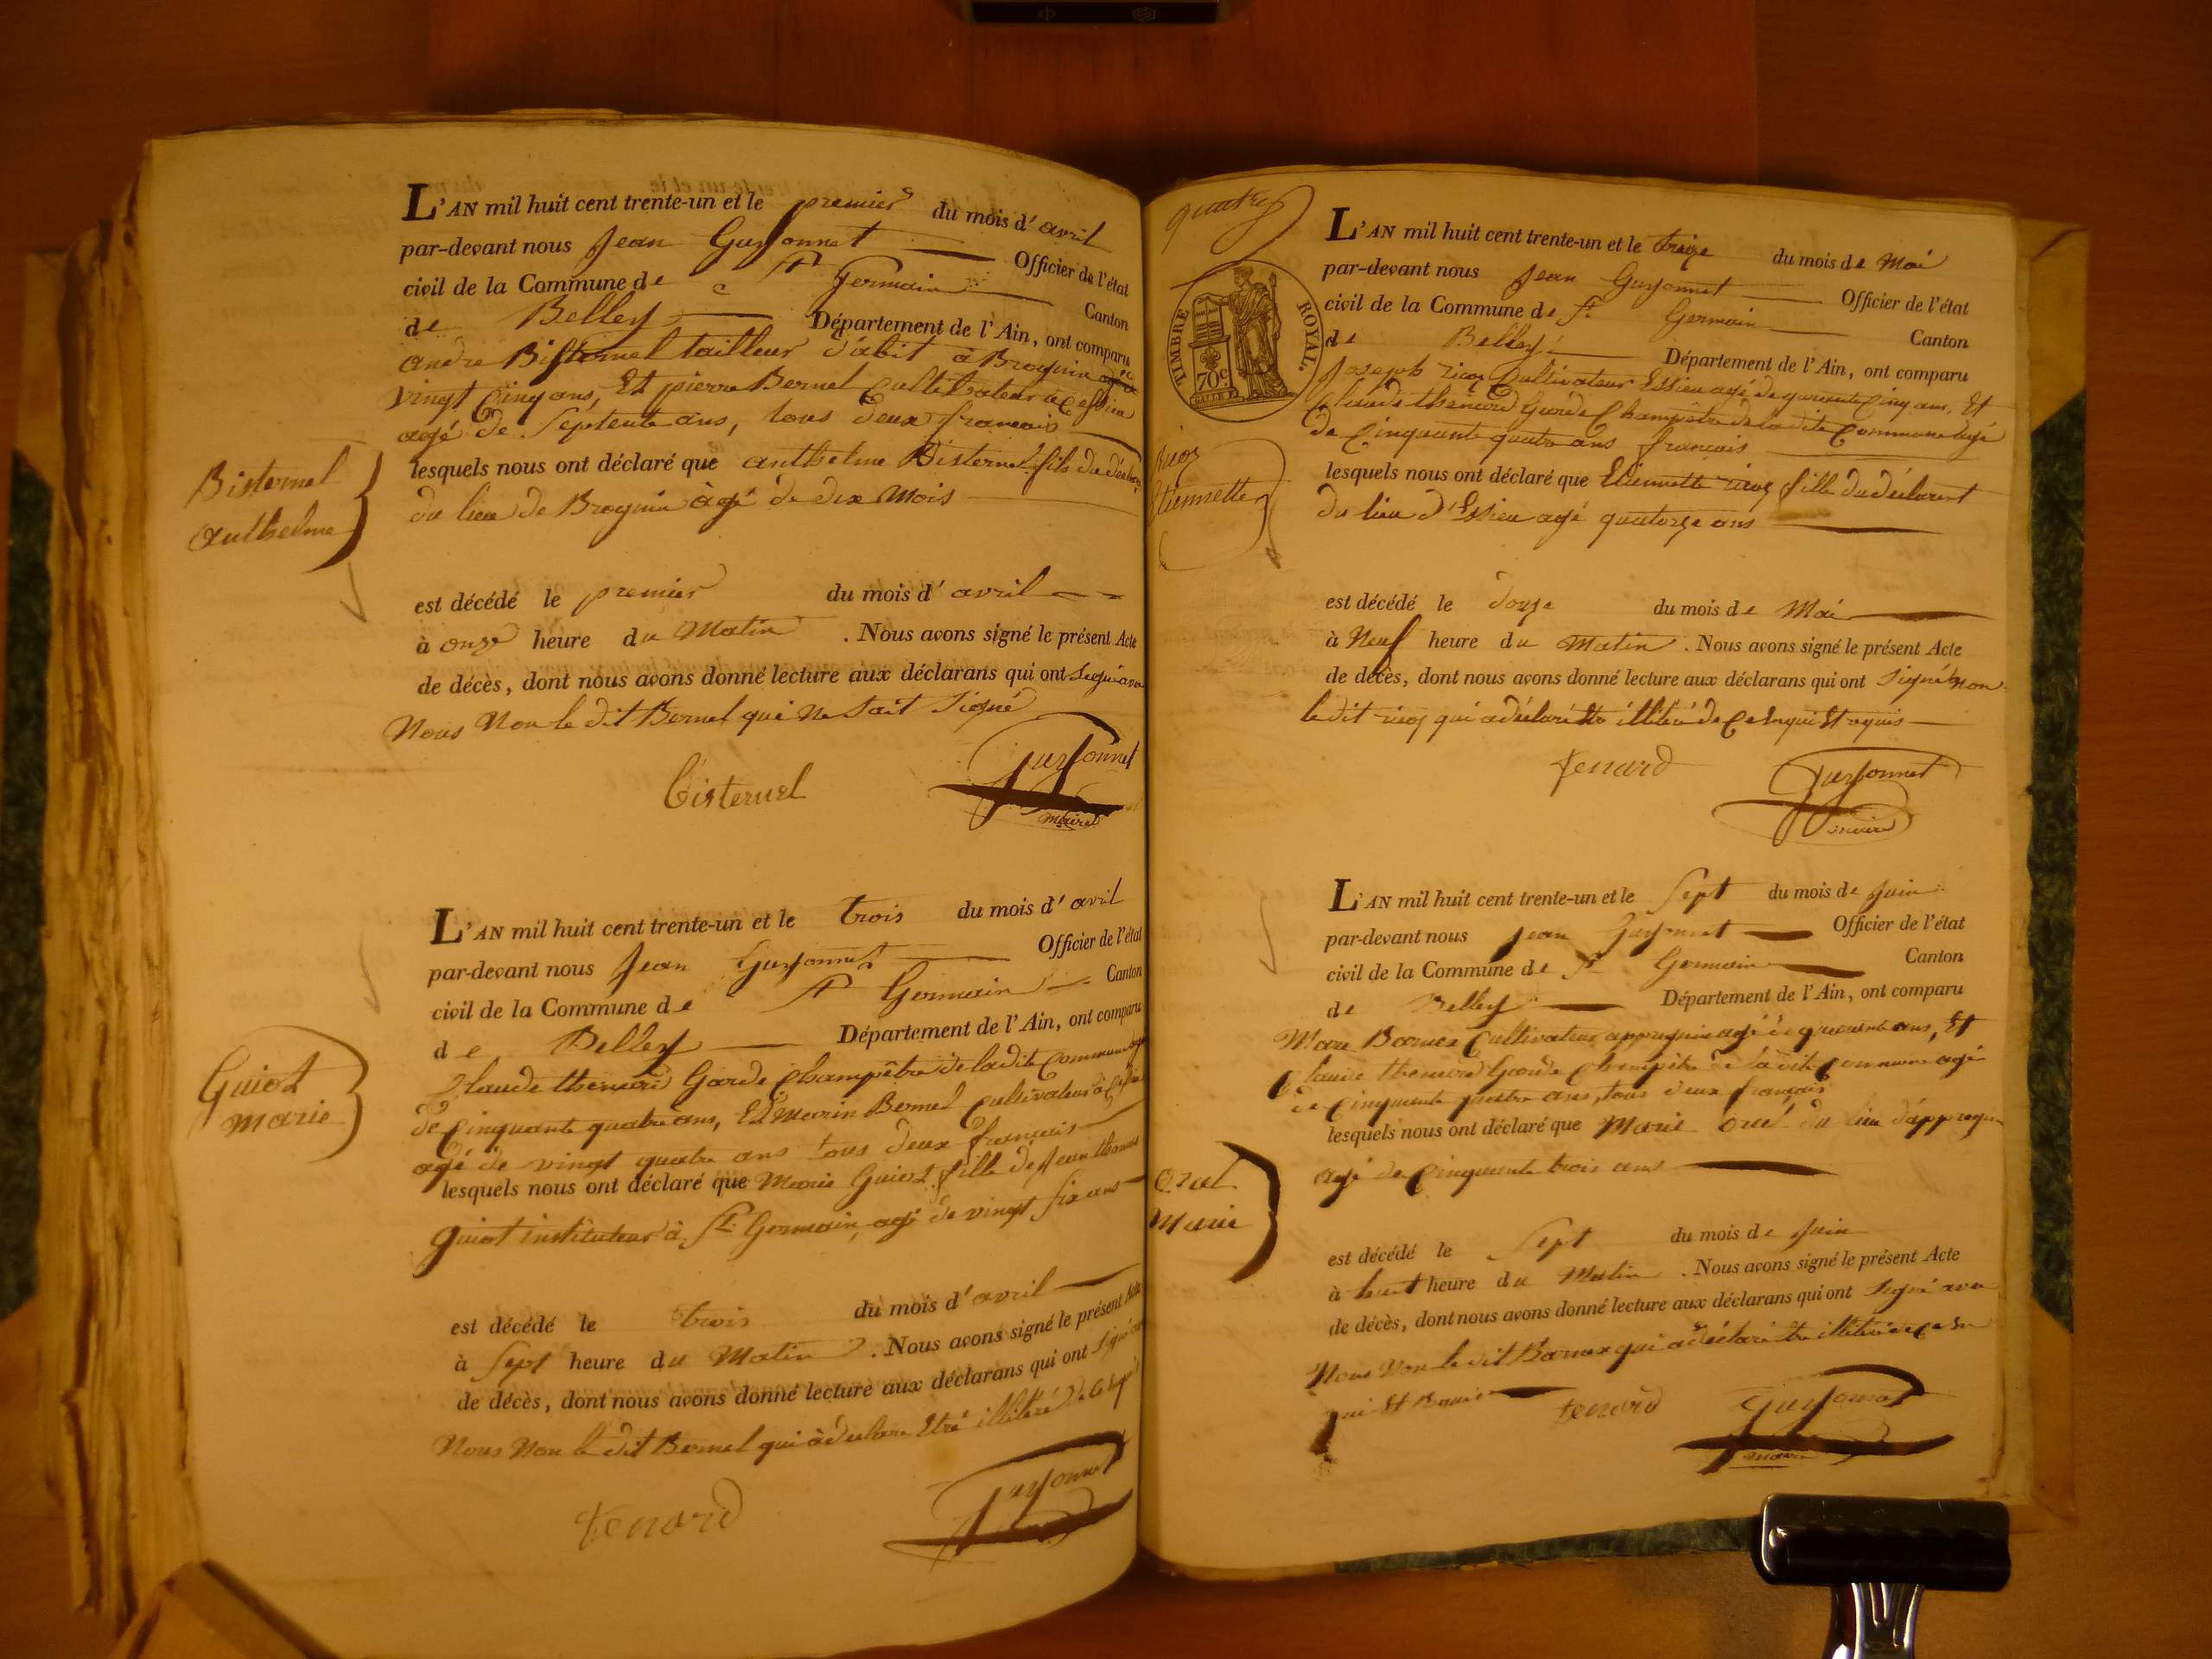 L'AN mil huit cent trente-un et le premier du mois d'avril
par-devant nous Jean Guyonnet Officier de l'état
civil de la Commune de St Germain Canton
de Belley Département de l'Ain, ont comparu
andre Bisternel tailleur d'abit à Brognin agé de
vingt cinq ans, Et pierre Bernel Cultivateur à Cessieu
agé de Septente ans, tous deux francais
lesquels nous ont déclaré que anthelme Bisternel fils du déclarant
du lieu de Brognin àgé de dix Mois
Bisternel
Anthelme
est décédé le premier du mois d'avril
à onze heure du Matin. Nous avons signé le présent Acte
de décès, dont nous avons donné lecture aux déclarans qui ont Signé avec
Nous Non le dit Bernel qui Ne Sait Signé
Bisternel Guyonnet
maire
L'AN mil huit cent trente-un et le trois du mois d'avril
par-devant nous Jean Guyonnet Officier de l'état
civil de la Commune de St Germain Canton
de Belley Département de l'Ain, ont comparu
Claude thenard Garde Champêtre de la dite Commune agé
de Cinquante quatre ans, Et Marin Bernel Cultivateur à
agé de vingt quatre ans tous deux francais
lesquels nous ont déclaré que Marie Guiot fille de Jean thomas
guiot instituteur à St Germain, agé de vingt six ans
Guiot
Marie
est décédé le trois du mois d'avril
à Sept heure du Matin. Nous avons signé le présent Acte
de décès, dont nous avons donné lecture aux déclarans qui ont Signé
Nous Non le dit Bernel qui à déclare Etre illitéré de ce
tenard Guyonnet
quatre
TIMBRE ROYAL.
70c.
L'AN mil huit cent trente-un et le treize du mois de Mai
par-devant nous Jean Guyonnet Officier de l'état
civil de la Commune de St Germain Canton
de Belley Département de l'Ain, ont comparu
Joseph ricoz Cultivateur Essieu agé de quarante Cinq ans, Et
Claude thenard Garde Champêtre de la dite Commune agé
de Cinquante quatre ans francais
lesquels nous ont déclaré que Etiennette ricoz fille du déclarent
du lieu d'Essieu agé quatorze ans
Ricoz
Etiennette
est décédé le douze du mois de Mai
à Neuf heure du Matin. Nous avons signé le présent Acte
de décès, dont nous avons donné lecture aux déclarans qui ont Signé Non
le dit ricoz qui a déclaré Etre illitéré de Ce Enqui Et requis
tenard Guyonnet
maire
L'AN mil huit cent trente-un et le Sept du mois de Juin
par-devant nous Jean Guyonnet Officier de l'état
civil de la Commune de St Germain Canton
de Belley Département de l'Ain, ont comparu
Marc Barnex Cultivateur appregnin agé de quarante ans, Et
Claude thenard Garde Champêtre de la dite Commune agé
de Cinquante quatre ans, tous deux francais
lesquels nous ont déclaré que Marie orcel du lieu d'appregnin
agé de Cinquante trois ans
Orcel
Marie
est décédé le Sept du mois de Juin
à huit heure du Matin. Nous avons signé le présent Acte
de décès, dont nous avons donné lecture aux déclarans qui ont Signé avec
Nous Non le dit Barnex qui a déclaré Etre illitéré de Ce En
qui Et Requis tenard Guyonnet
maire